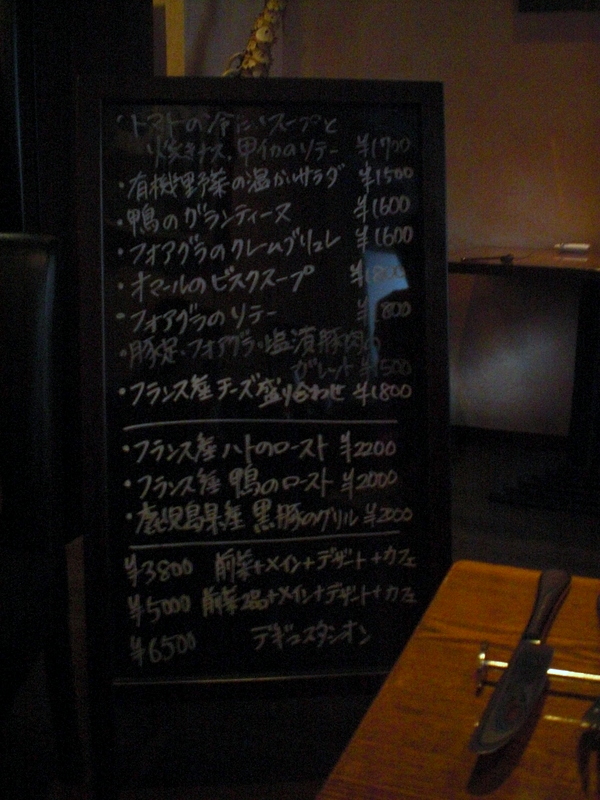 ・トマトの冷たいスープと
焼きナス、甲イカのソテー ¥1700
・有機野菜の温かいサラダ ¥1500
・鴨のガランティーヌ ¥1600
・フォアグラのクレームブリュレ ¥1600
・オマールのビスクスープ
・フォアグラのソテー
・豚足・フォアグラ・塩漬豚肉の
ガレット ¥1500
・フランス産チーズ盛り合わせ ¥1800
・フランス産 ハトのロースト ¥2200
・フランス産 鴨のロースト ¥2000
・鹿児島県産 黒豚のグリル ¥2000
¥3800 前菜+メイン+デザート+カフェ
¥5000 前菜2品+メイン+デザート+カフェ
¥6500 デギュスタシオン